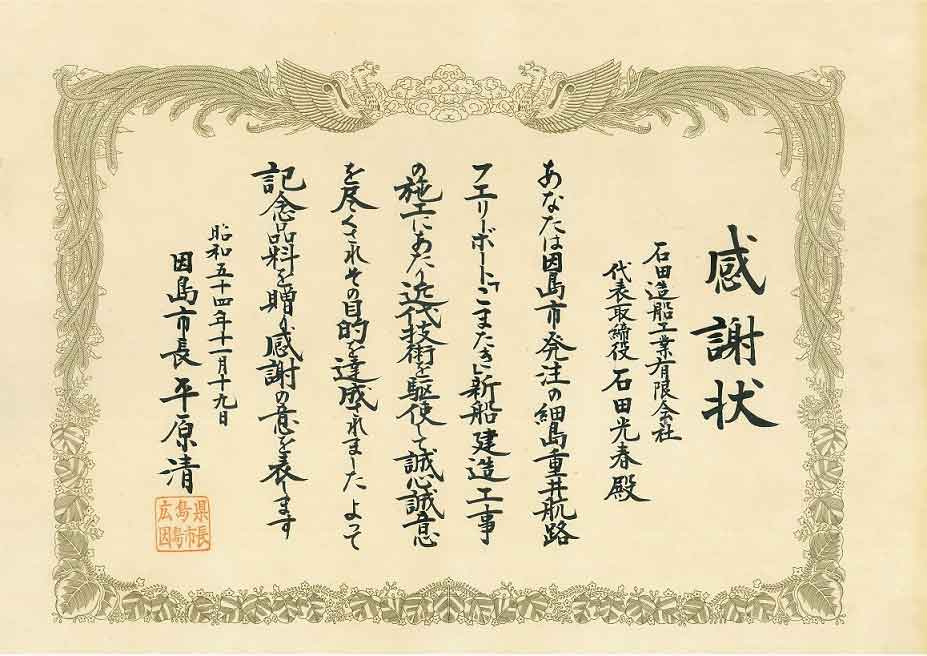 感謝状
石田造船工業有限会社
代表取締役 石田光春殿
あなたは因島市発注の細島重井航路
フエリーボート「こまたき」新船建造工事
の施工にあたり近代技術を駆使して誠心誠意
を尽くされその目的を達成されました よって
記念品料を贈り感謝の意を表します
昭和五十四年十一月十九日
因島市長 平原清
広島県
因島市長